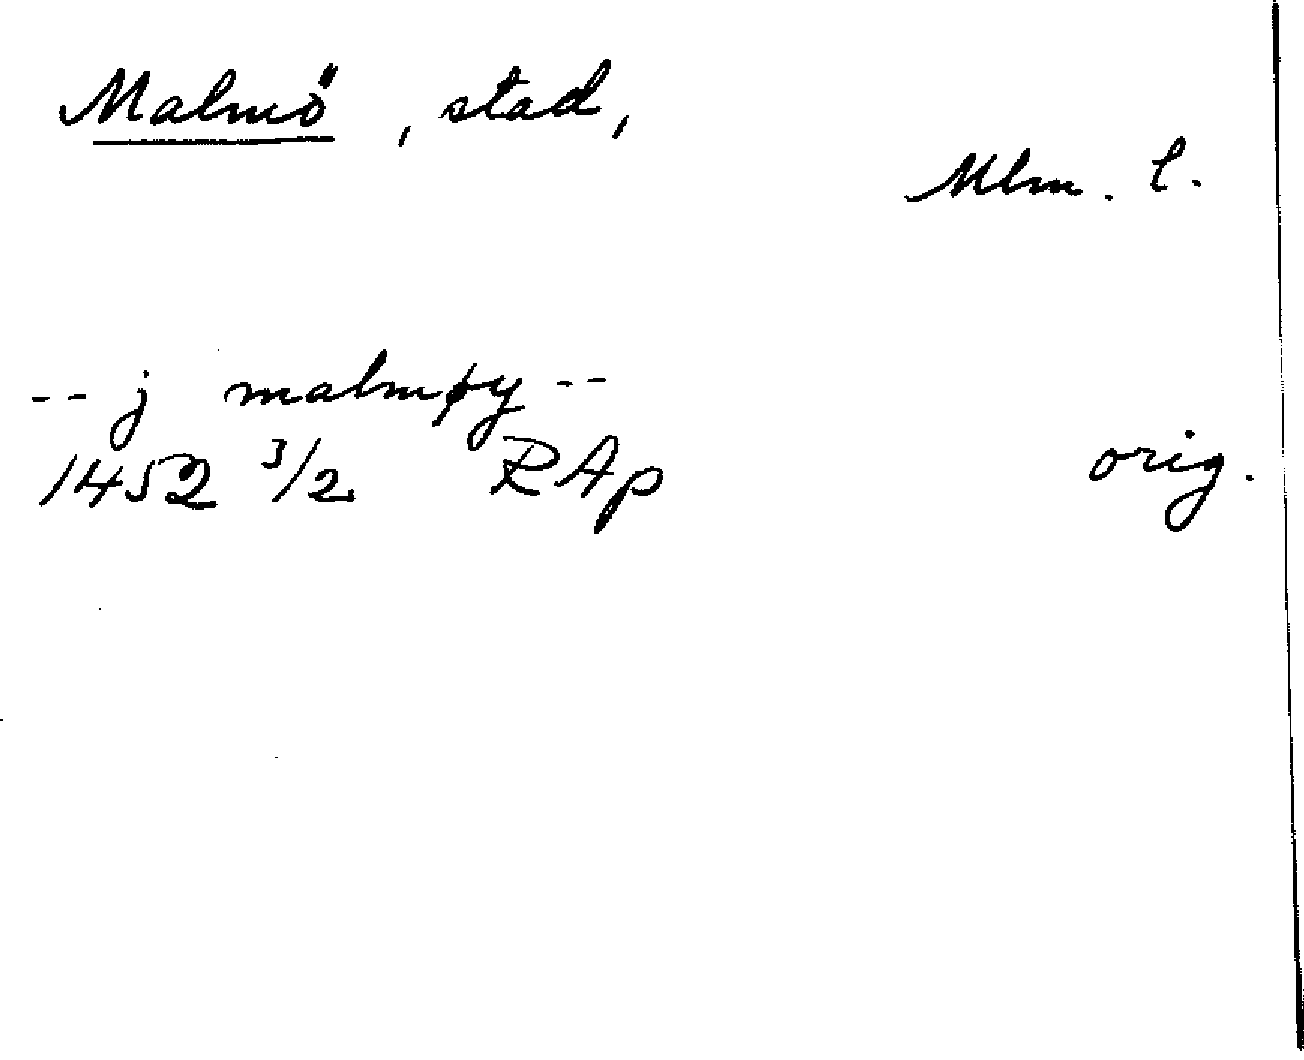 Malmö, stad,
Mlm. l.
-- j malmøy --
1452 3/2 RAp orig.